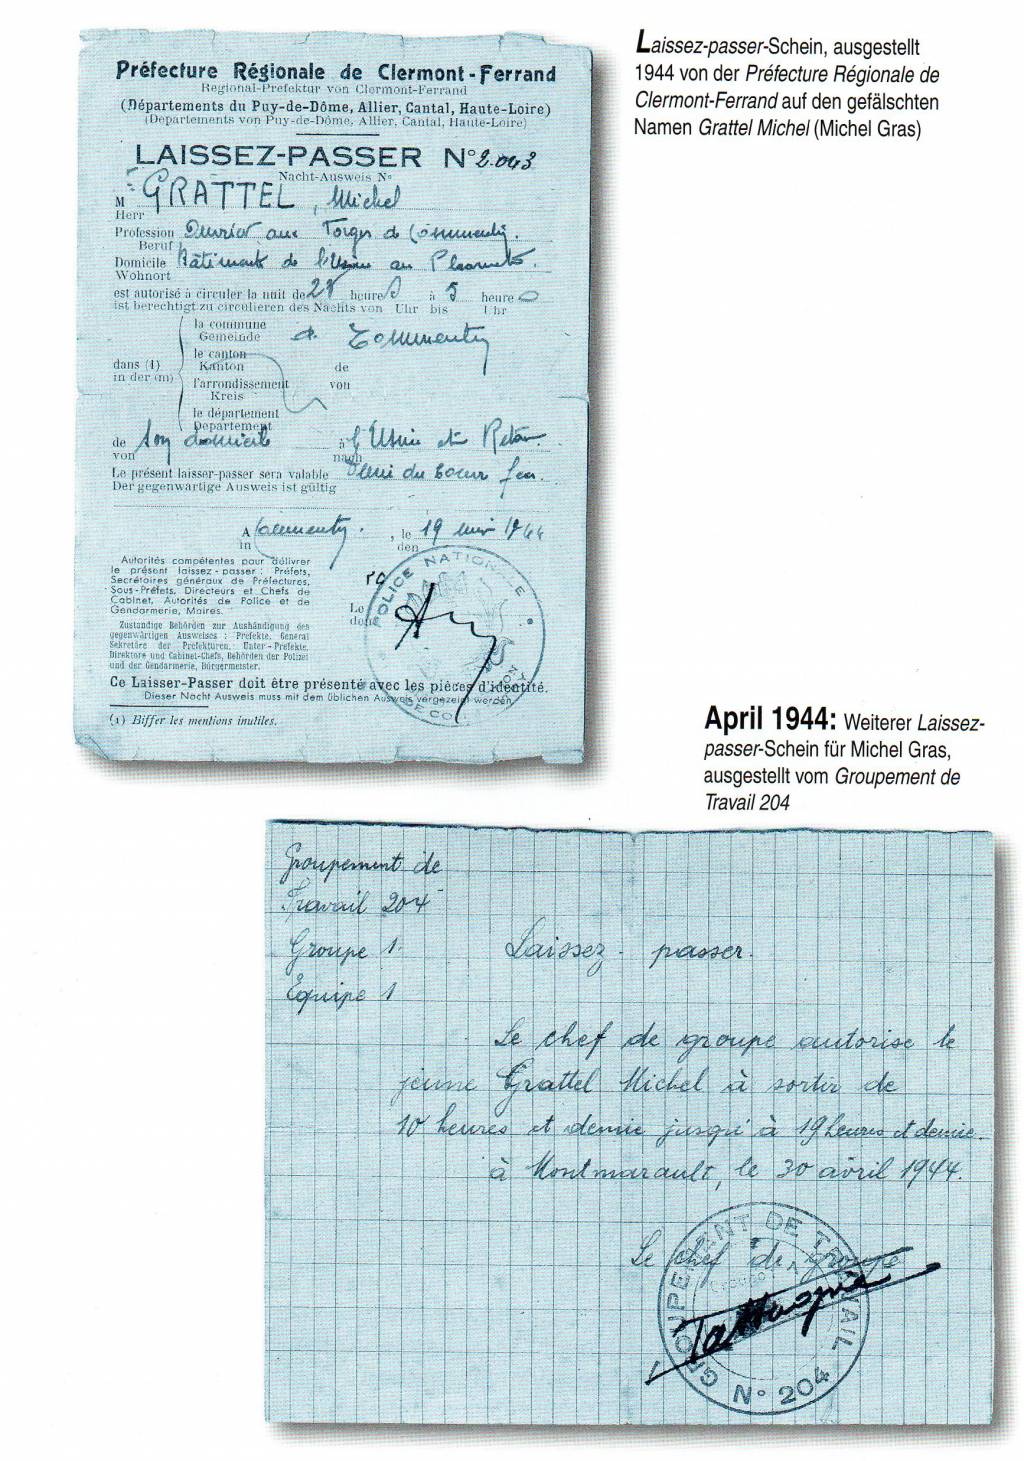 Laissez-passer-Schein, ausgestellt
1944 von der Préfecture Régionale de
Clermont-Ferrand auf den gefälschten
Namen Grattel Michel (Michel Gras)
Préfecture Régionale de Clermont-Ferrand
Regional-Prefektur von Clermont-Ferrand
(Départements du Puy-de-Dôme, Allier, Cantal, Haute-Loire)
(Departements von Puy-de-Dôme, Allier, Cantal, Haute-Loire)
LAISSEZ-PASSER N° 2.043
Nacht-Ausweis N°
M GRATTEL, Michel
Herr
Profession Ouvrier aux Forges de Commentry.
Beruf
Domicile Bâtiments de l'Usine au
Wohnort
est autorisé à circuler la nuit de heure à 5 heure
ist berechtigt zu circulieren des Nachts von Uhr bis Uhr
dans (1)
in der (m)
la commune
Gemeinde
de Commentry
le canton
Kanton
de
l'arrondissement
von
Kreis
le département
Departement
de son domicile à l'Usine et Retour
von nach
Le présent laisser-passer sera valable
Der gegenwartige Ausweis ist gültig
A Commentry, le 19 1944
in den
Autorités compétentes pour délivrer
le présent laissez-passer : Préfets,
Secrétaires généraux de Préfectures,
Sous-Préfets, Directeurs et Chefs de
Cabinet, Autorités de Police et de
Gendarmerie, Maires.
Zustandige Behörden zur Aushändigung des
gegenwärtigen Ausweises : Prefekte, General
Sekretäre der Prefekturen, Unter-Prefekte,
Direktore und Cabinet-Chefs, Behörden der Polizei
und der Gendarmerie, Bürgermeister.
Le
den
POLICE NATIONALE
Ce Laisser-Passer doit être présenté avec les pièces d'identité.
Dieser Nacht Ausweis muss mit dem üblichen Ausweis vergezeigt werden
(1) Biffer les mentions inutiles.
April 1944: Weiterer Laissez-
passer-Schein für Michel Gras,
ausgestellt vom Groupement de
Travail 204
Groupement de
Travail 204
Groupe 1
Equipe 1
Laissez-passer.
Le chef de groupe autorise le
jeune Grattel Michel à sortir de
10 heures et demie jusqu'à 19 heures et demie
à Montmarault, le 30 avril 1944.
Le chef de groupe
GROUPEMENT DE TRAVAIL
N° 204